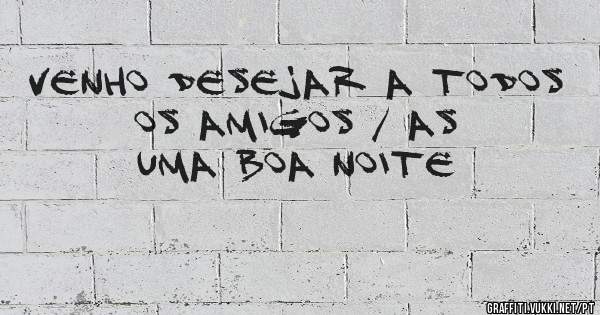 VENHO DESEJAR A TODOS
OS AMIGOS / AS
UMA BOA NOITE
GRAFFITI.VUKKI.NET/PT